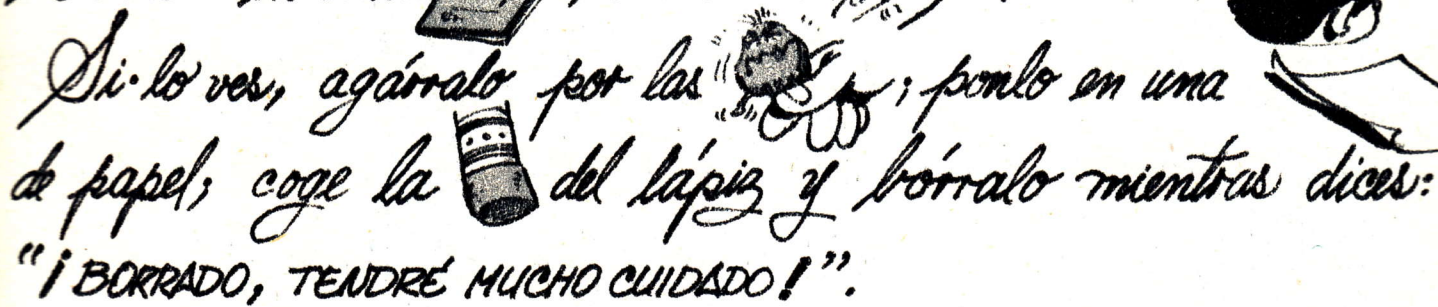 Si lo ves, agárralo por las ; ponlo en una
de papel; coge la del lápiz y bórralo mientras dices:
"¡BORRADO, TENDRÉ MUCHO CUIDADO!".